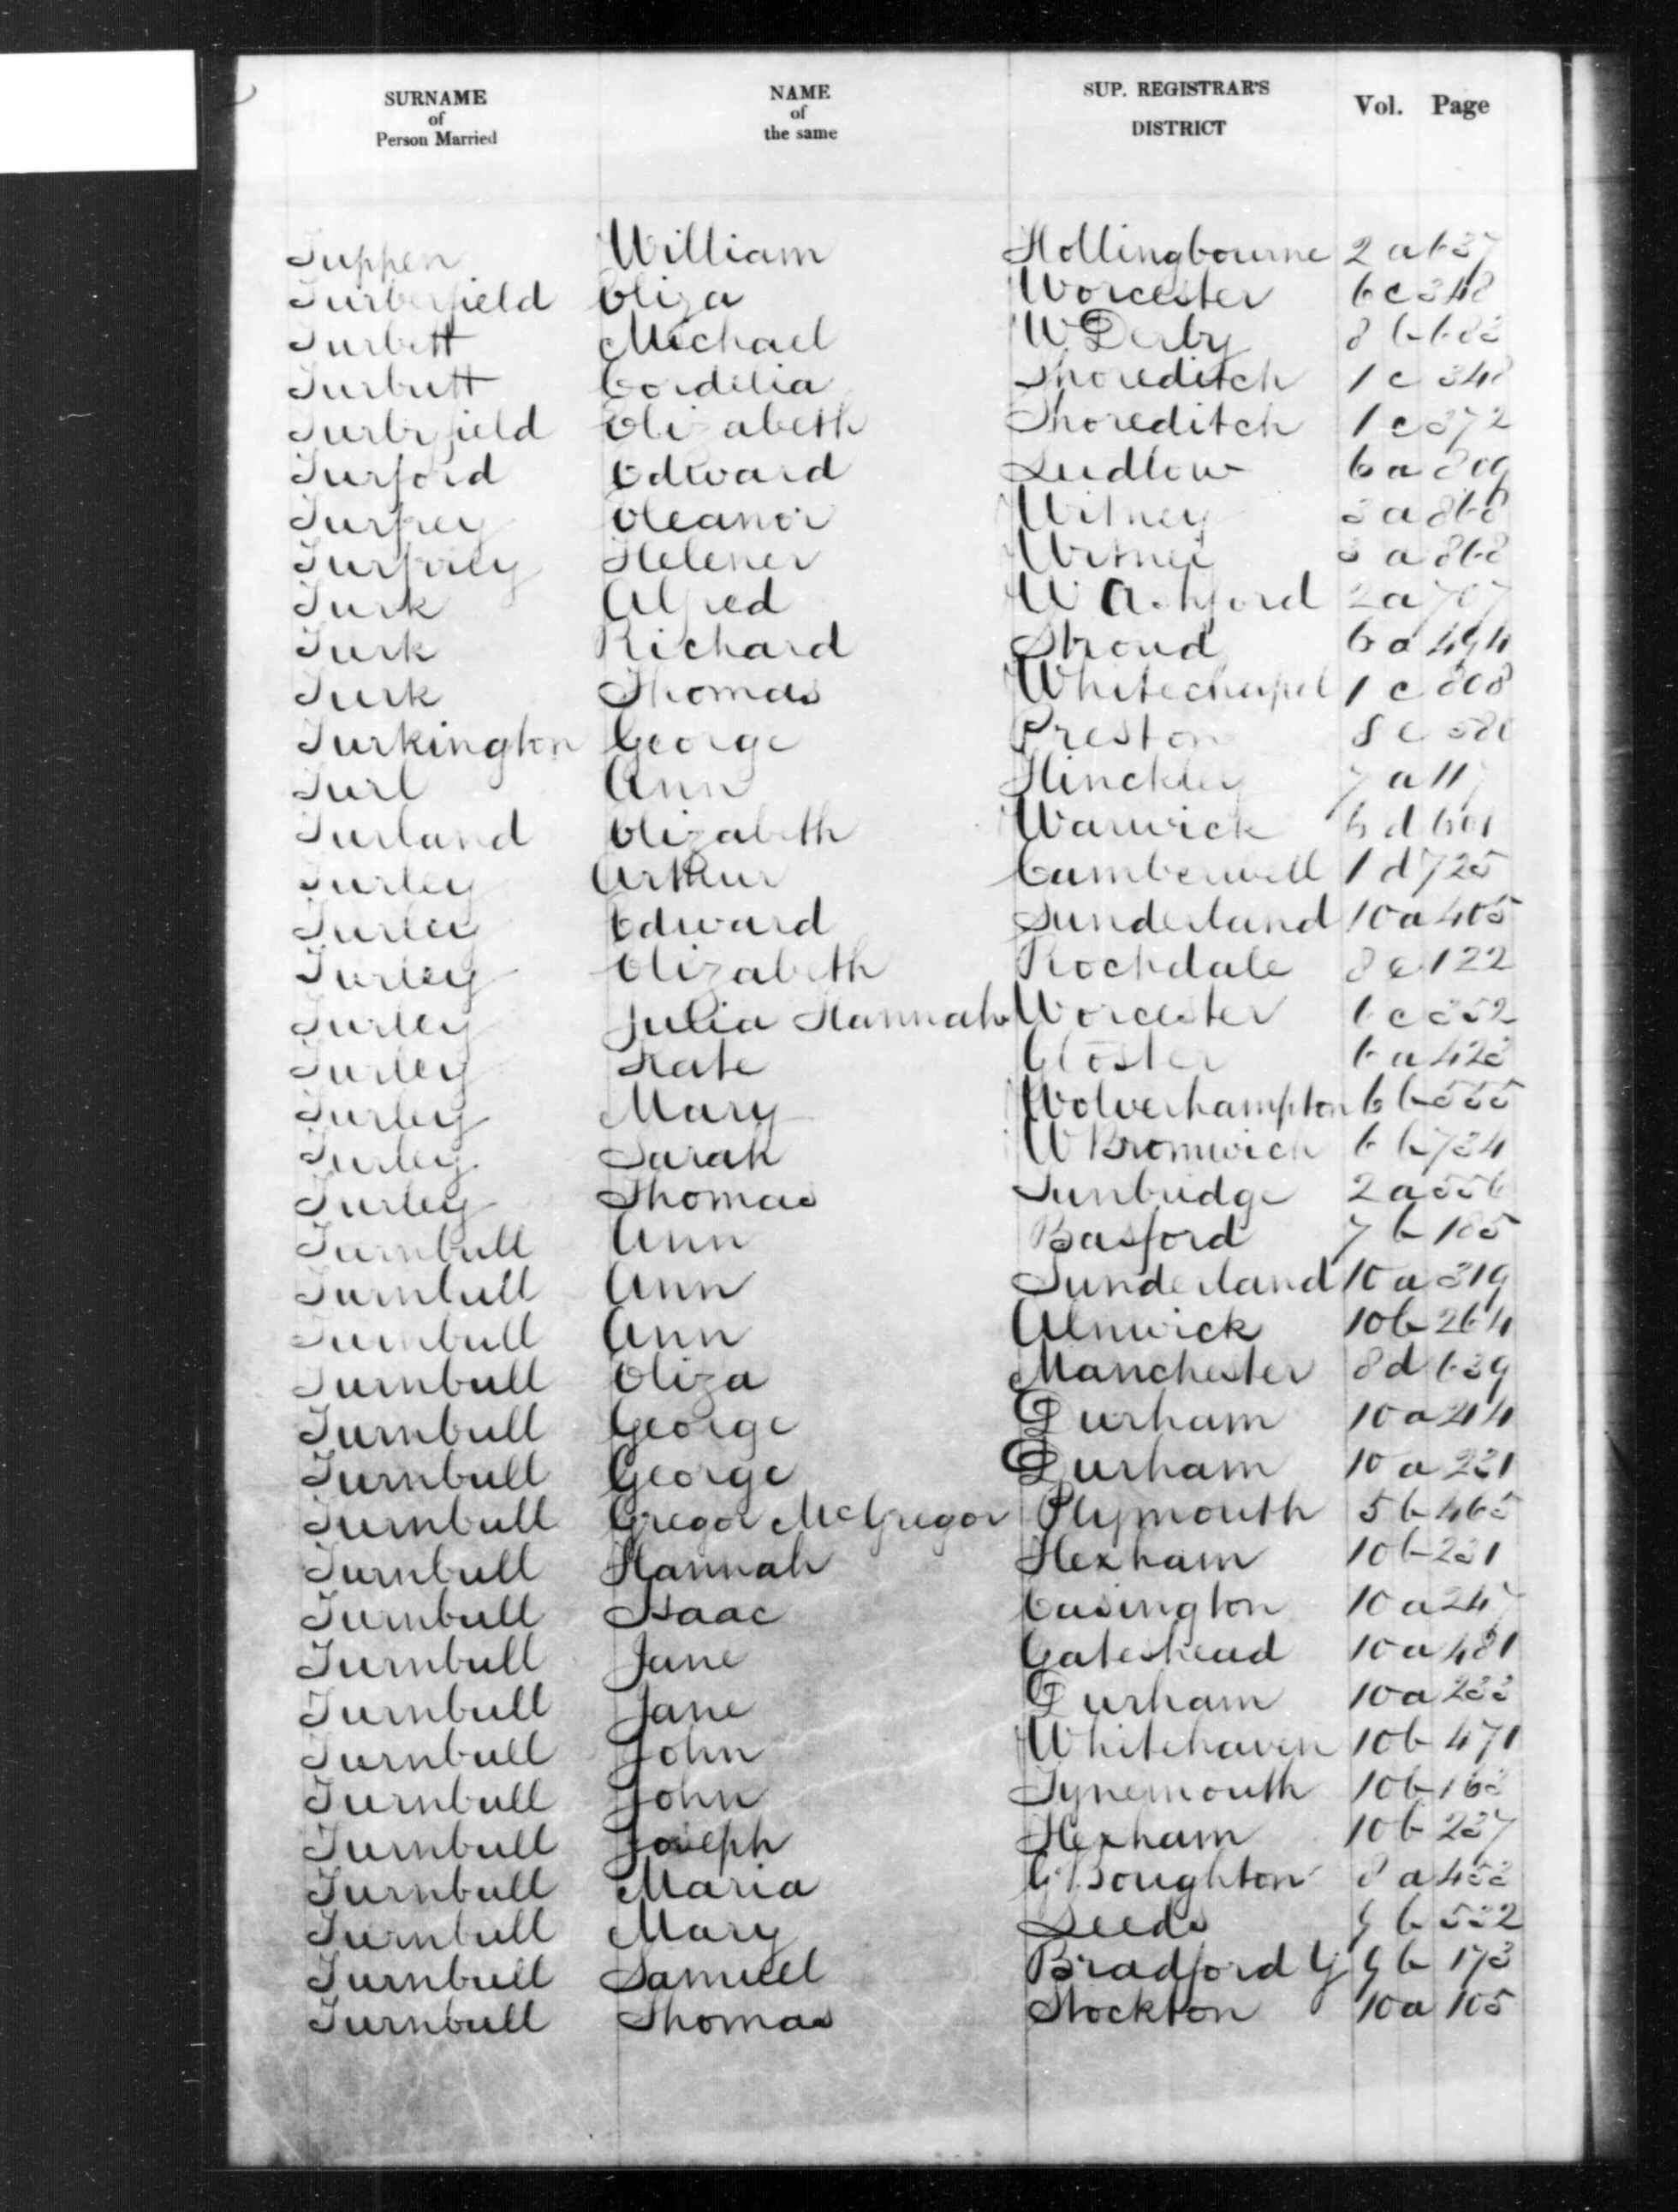 SURNAME of Person Married NAME of the same SUP. REGISTRAR'S DISTRICT Vol. Page
Tuppen William Hollingbourne 2 a 637
Turberfield Eliza Worcester 6 c 348
Turbett Michael W Derby 8 b 683
Turbutt Cordelia Shoreditch 1 c 348
Turbyfield Elizabeth Shoreditch 1 c 372
Turford Edward Ludlow 6 a 809
Turfrey Eleanor Witney 3 a 868
Turfrey Helener Witney 3 a 868
Turk Alfred W Ashford 2 a 707
Turk Richard Stroud 6 a 494
Turk Thomas Whitechapel 1 c 808
Turkington George Preston 8 e
Turl Ann Hinckley 7 a 117
Turland Elizabeth Warwick 6 d 601
Turley Arthur Camberwell 1 d 725
Turley Edward Sunderland 10 a 405
Turley Elizabeth Rochdale 8 e 122
Turley Julia Hannah Worcester 6 c 352
Turley Kate Gloster 6 a 423
Turley Mary Wolverhampton 6 b 555
Turley Sarah W Bromwich 6 b 734
Turley Thomas Tunbridge 2 a 556
Turnbull Ann Basford 7 b 185
Turnbull Ann Sunderland 10 a 319
Turnbull Ann Alnwick 10 b 264
Turnbull Eliza Manchester 8 d 639
Turnbull George Durham 10 a 244
Turnbull George Durham 10 a 231
Turnbull Gregor McGregor Plymouth 5 b 465
Turnbull Hannah Hexham 10 b 231
Turnbull Isaac Easington 10 a 247
Turnbull Jane Gateshead 10 a 481
Turnbull Jane Durham 10 a 233
Turnbull John Whitehaven 10 b 471
Turnbull John Tynemouth 10 b 163
Turnbull Joseph Hexham 10 b 237
Turnbull Maria G Boughton 8 a 453
Turnbull Mary Leeds 9 b 532
Turnbull Samuel Bradford Y 9 b 173
Turnbull Thomas Stockton 10 a 105